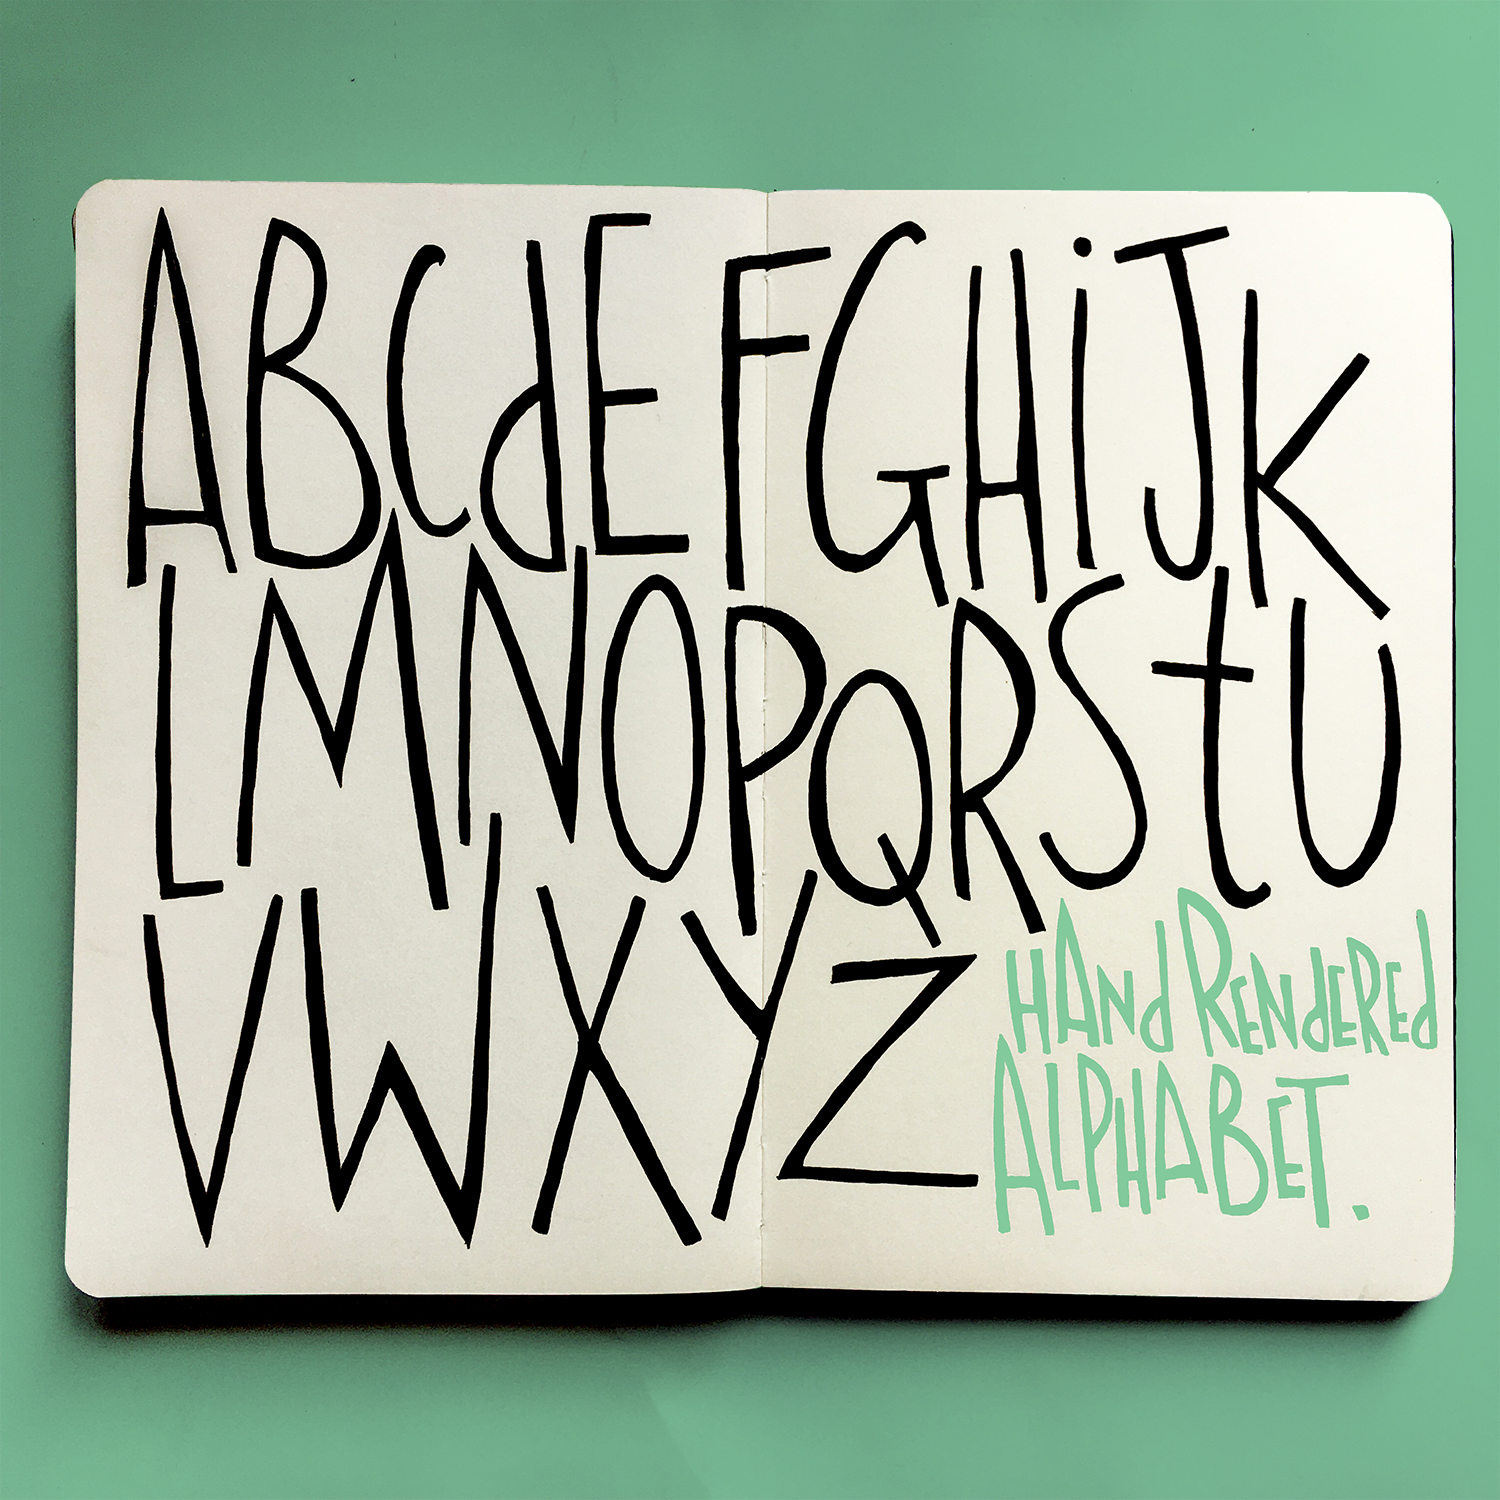 ABCdEFGHiJK
LMNOPQRStU
VWXYZ
HANd RENdERED
ALPHABET.